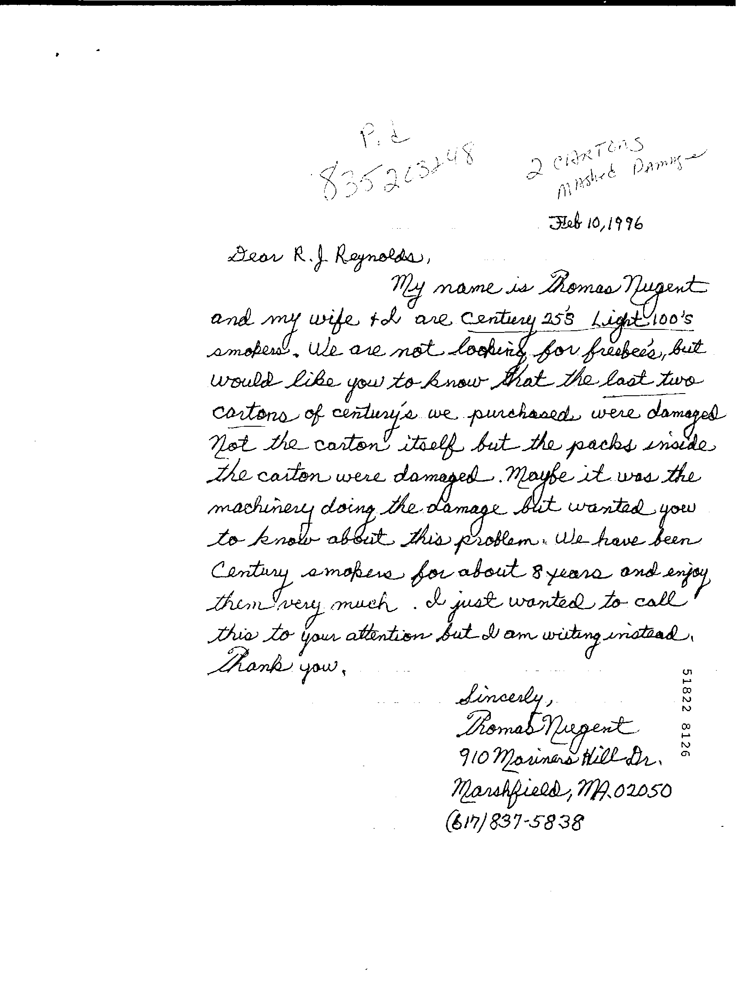 P.d
835203248
2 CARTONS
MAShed DAMAge
Feb 10, 1996
Dear R. J. Reynolds,
My name is Thomas Nugent
and my wife + I are Century 25's Light 100's
smokers. We are not looking for freebee's, but
would like you to know that the last two
cartons of century's we purchased were damaged
Not the carton itself but the packs inside
the carton were damaged. Maybe it was the
machinery doing the damage but wanted you
to know about this problem. We have been
Century smokers for about 8 years and enjoy
them very much. I just wanted to call
this to your attention but I am writing instead.
Thank you.
Sincerly,
Thomas Nugent
910 Mariners Hill Dr.
Marshfield, MA. 02050
(617) 837-5838
51822 8126